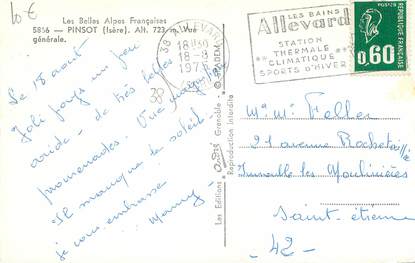 10€
Les Belles Alpes Françaises
5856 - PINSOT (Isère). Alt. 723 m. Vue
générale.
38 ALLEVARD
18 H
18-8
ISERE
LES BAINS
Allevard
STATION
THERMALE
CLIMATIQUE
SPORTS D'HIVER
POSTES
0,60
Le 18 août
Joli pays un peu
aride - de très belles
promenades. Vue magnifique
Il manque du soleil.
je vous embrasse
Les Editions
Grenoble
Reproduction interdite
M. Mme Felles
21 avenue Rochetaillée
Immeuble les Moulinières
Saint-étienne
- 42 -